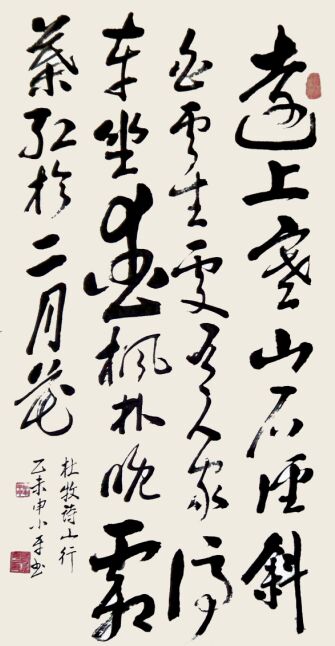 遠上寒山石徑斜
白雲生處有人家停
車坐愛楓林晚霜
葉紅於二月花
杜牧詩山行
乙未申小平书